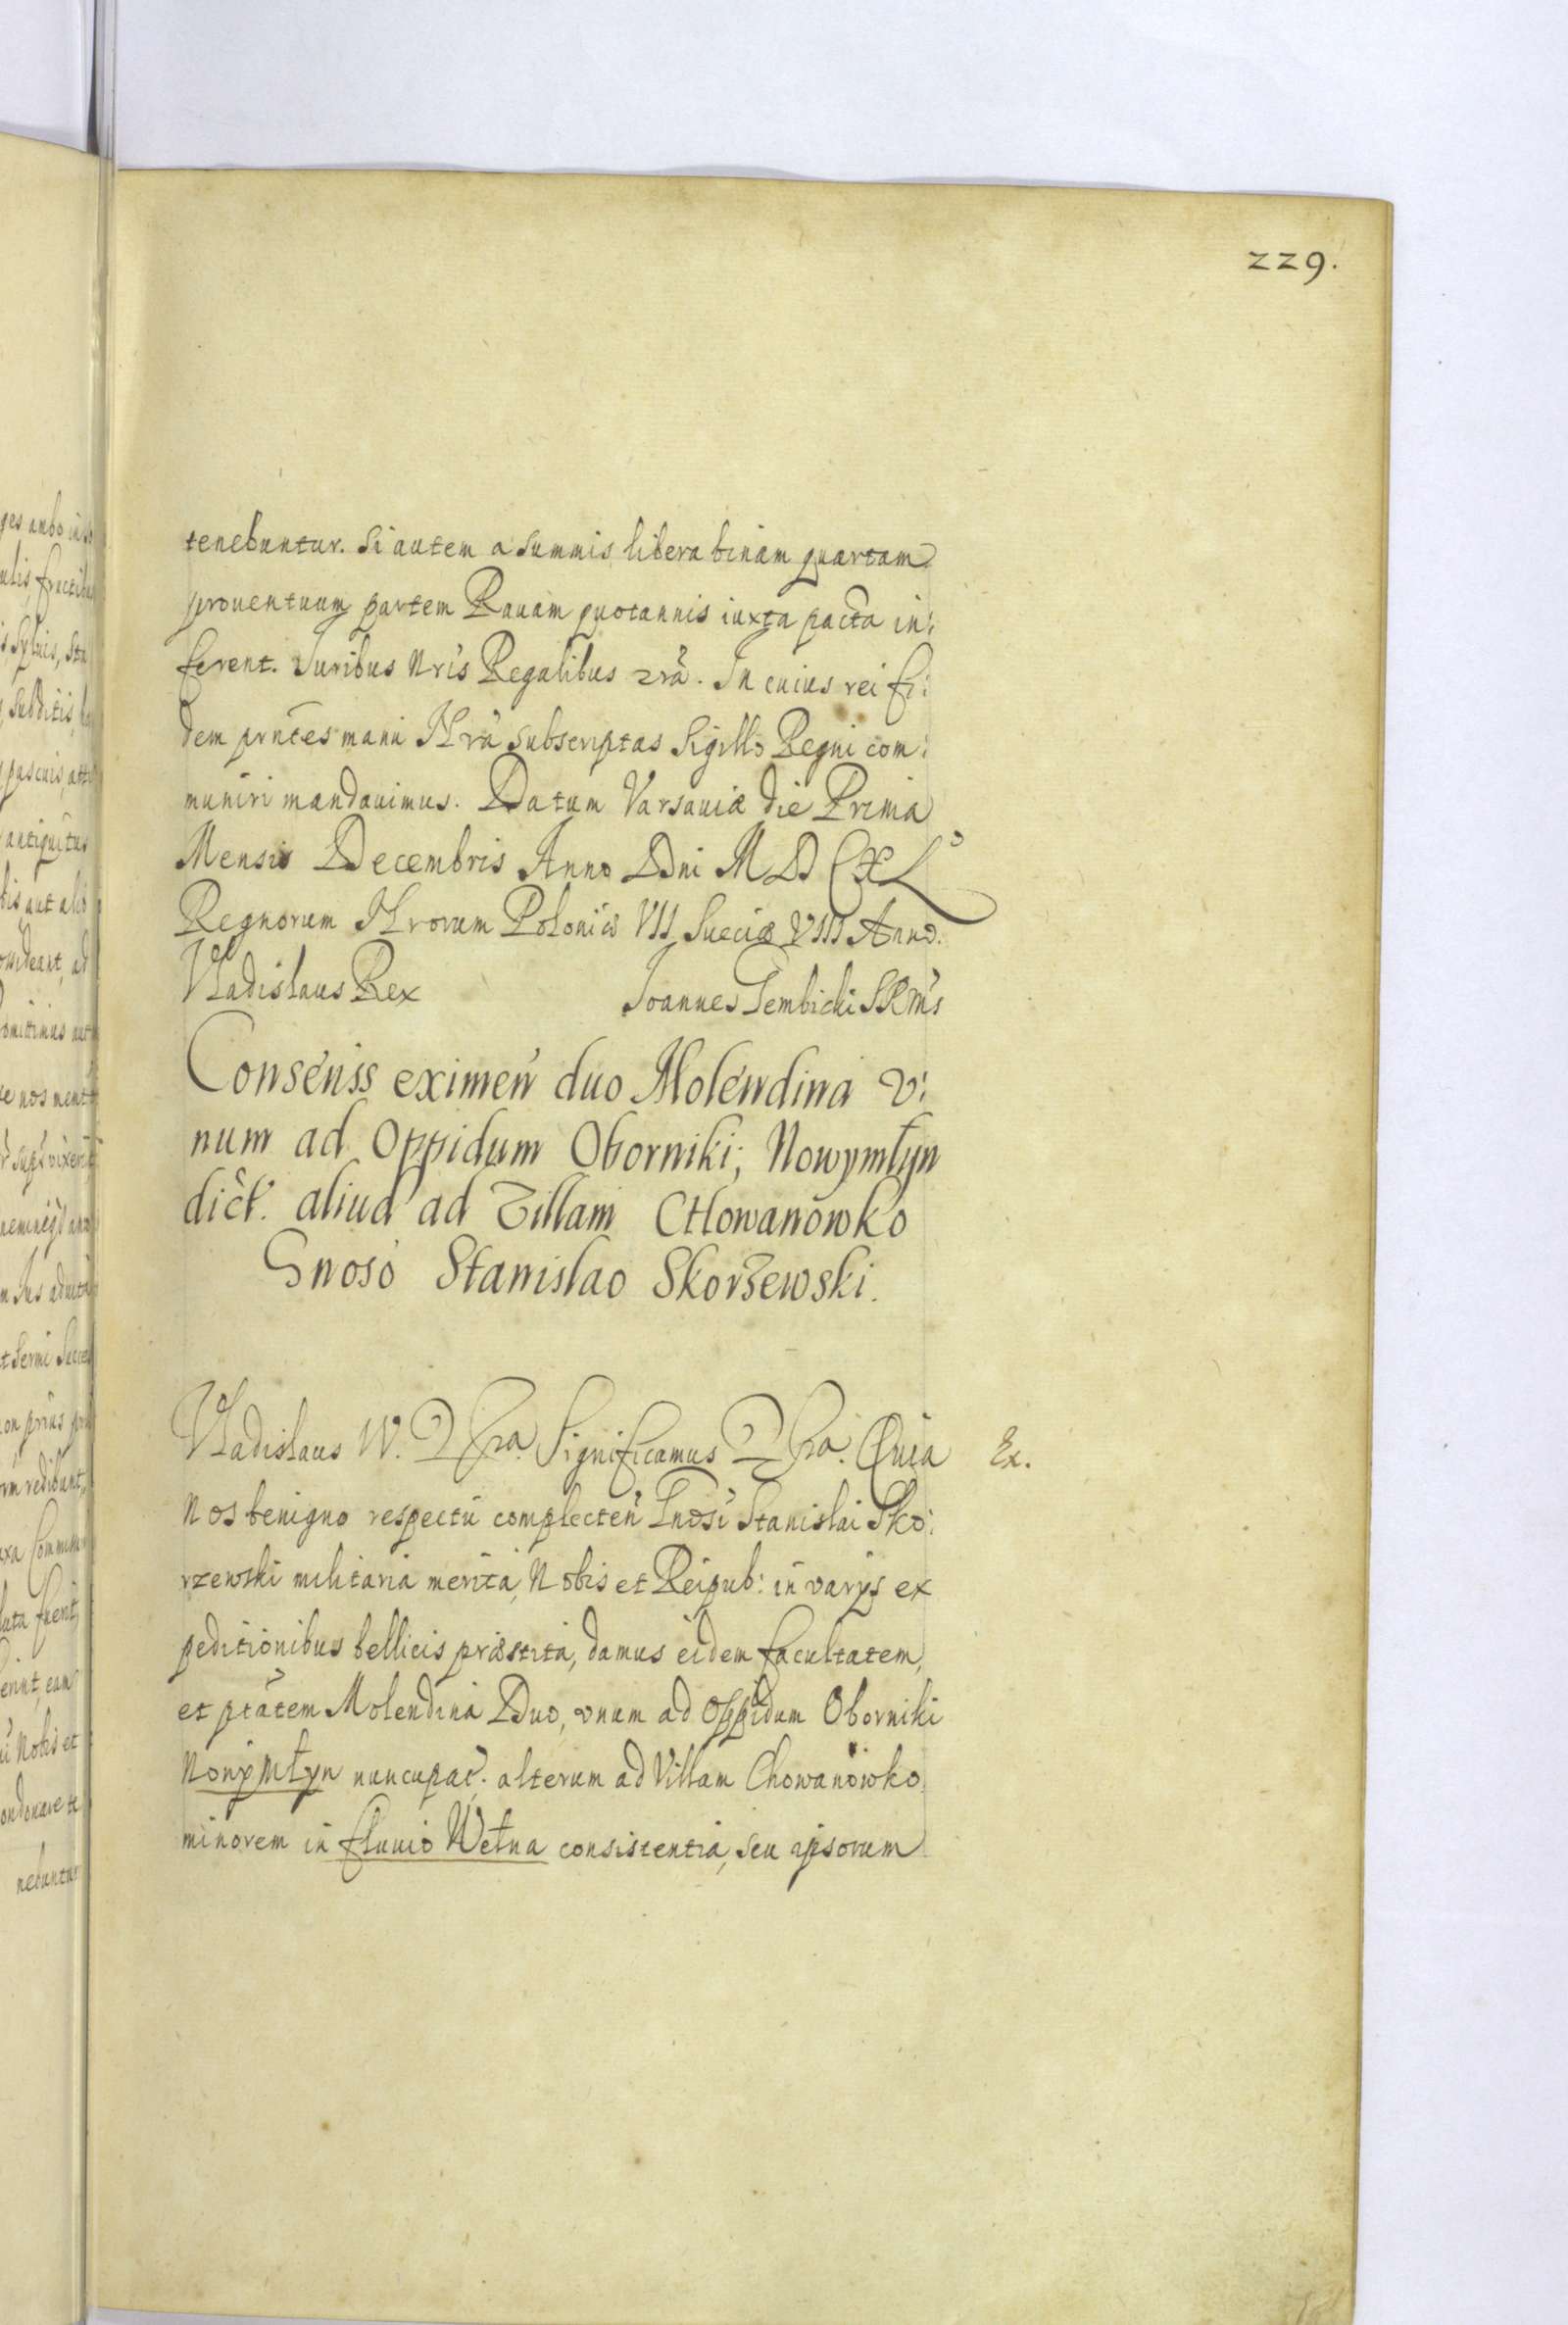 229.
tenebuntur. Si autem a summis libera binam quartam
prouentuum partem Rauam quotannis iuxta pacta in:
ferent. Juribus Nris Regalibus
In cuius rei fi:
dem prntes manu Nra subscriptas Sigillo Regni com:
muniri mandauimus. Datum Varsauiæ die Prima
Mensis Decembris Anno Dni MDCXLo
Regnorum Nrorum Poloniæ VII Sueciæ VIII Anno.
Vladislaus Rex Joannes Gembicki SRMs
Consenss eximen duo Molendina v:
num ad Oppidum Oborniki; Nowymłyn
dict. aliud ad Villam CHowanowko
Gnoso Stanislao Skorzewski.
Vladislaus IV. Dra. Significamus Pra. Quia
Ex.
Nos benigno respectu complecten Gnosi Stanislai Sko:
rzewski militaria merita, Nobis et Reipub: in varijs ex
peditionibus bellicis præstita, damus eidem facultatem,
et ptatem Molendina Duo, vnum ad Oppidum Oborniki
Nowymłyn nuncupat. alterum ad Villam Chowanowko
minorem in fluuio Wełna consistentia, seu ipsorum
ges ambo in
fructib
Syluis, sta
Subditis,
pascuis, att
antiquitus
aut
ad
nos
et
Commiss
fuerit,
erint, eam
Nobis et
nebuntur